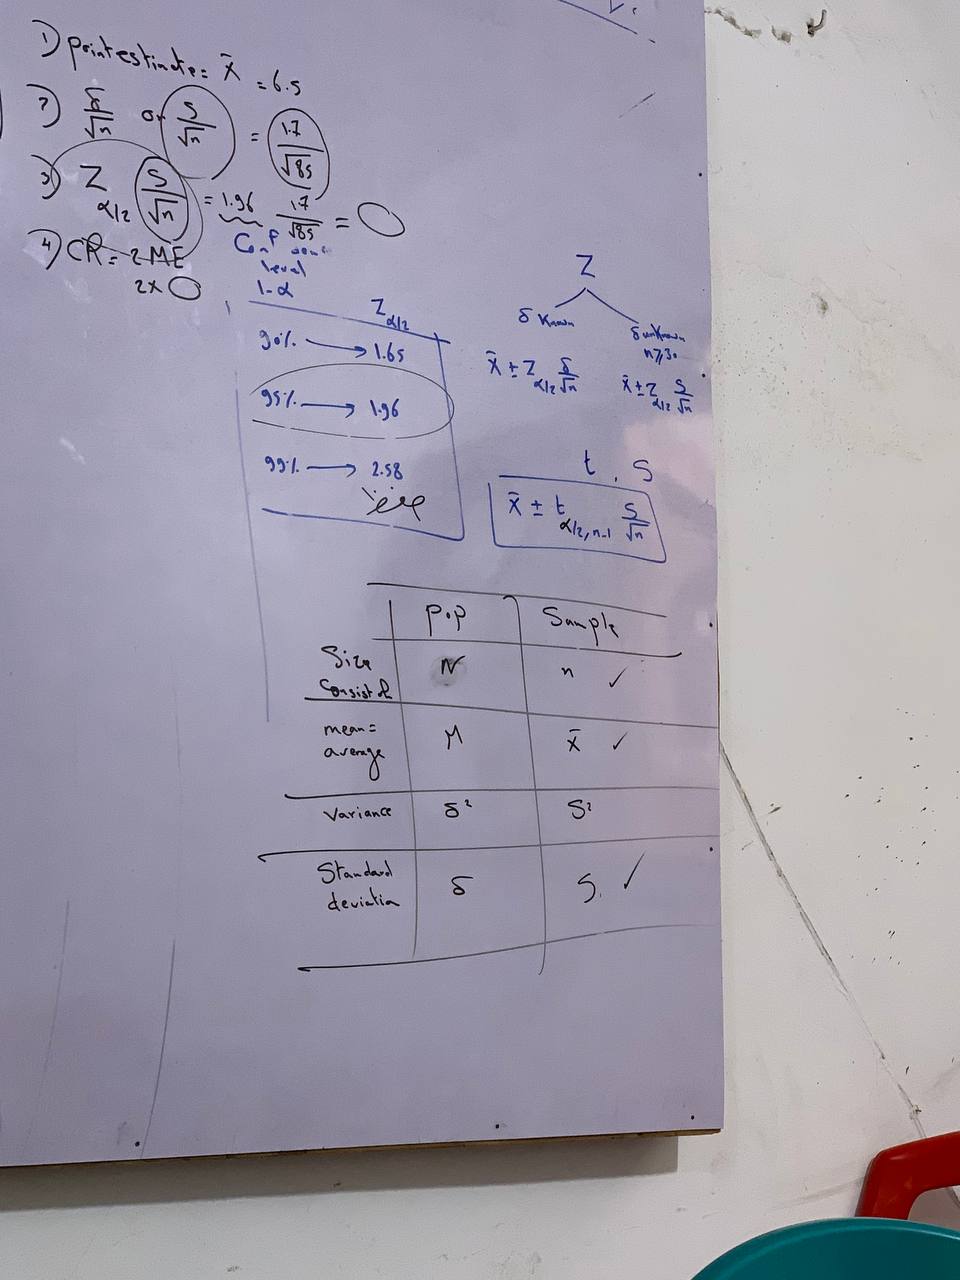 1) Point estimate = x̄ = 6.5
2) δ/√n or S/√n = 1.7/√85
3) Z α/2 S/√n = 1.96 1.7/√85 =
4) CR = 2 ME
2x
Conf
level
1-α
Z α/2
90% → 1.65
95% → 1.96
99% → 2.58
Z
δ known
δ unknown
n ≥ 30
x̄ ± Z α/2 δ/√n
x̄ ± Z α/2 S/√n
t, S
x̄ ± t α/2, n-1 S/√n
Pop Sample
Size N n ✓
Consist of
mean = M x̄ ✓
average
Variance δ² S²
Standard δ S ✓
deviation